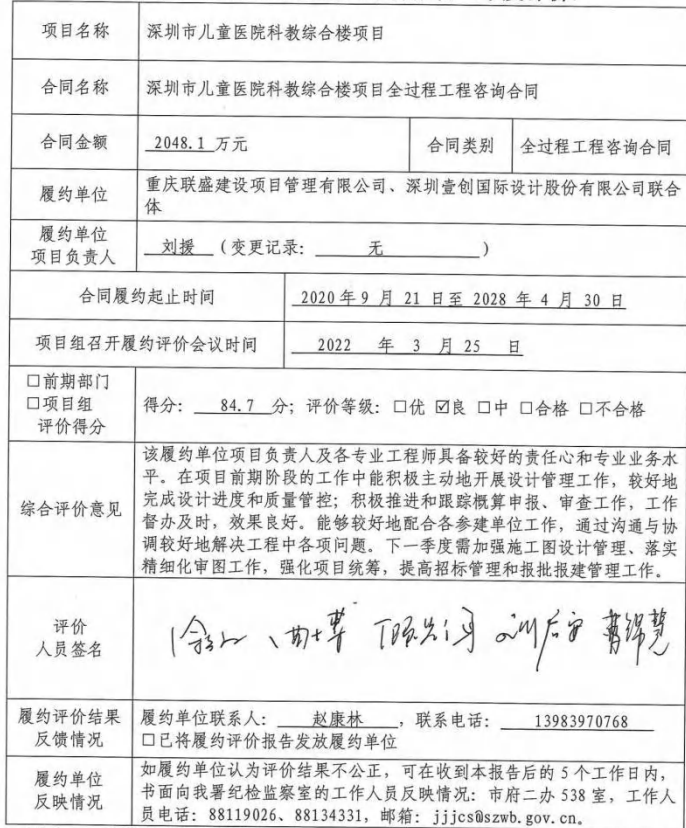 项目名称
深圳市儿童医院科教综合楼项目
合同名称
深圳市儿童医院科教综合楼项目全过程工程咨询合同
合同金额
2048.1 万元
合同类别
全过程工程咨询合同
履约单位
重庆联盛建设项目管理有限公司、深圳壹创国际设计股份有限公司联合
体
履约单位
项目负责人
刘援 （变更记录： 无 ）
合同履约起止时间
2020年9 月 21 日至 2028 年 4 月 30 日
项目组召开履约评价会议时间
2022 年 3 月 25 日
□前期部门
□项目组
评价得分
得分： 84.7 分；评价等级：□优 ☑良 □中 □合格 □不合格
综合评价意见
该履约单位项目负责人及各专业工程师具备较好的责任心和专业业务水
平。在项目前期阶段的工作中能积极主动地开展设计管理工作，较好地
完成设计进度和质量管控；积极推进和跟踪概算申报、审查工作，工作
督办及时，效果良好。能够较好地配合各参建单位工作，通过沟通与协
调较好地解决工程中各项问题。下一季度需加强施工图设计管理、落实
精细化审图工作，强化项目统筹，提高招标管理和报批报建管理工作。
评价
人员签名
履约评价结果
反馈情况
履约单位联系人： 赵康林 ，联系电话： 13983970768
□已将履约评价报告发放履约单位
履约单位
反映情况
如履约单位认为评价结果不公正，可在收到本报告后的 5 个工作日内，
书面向我署纪检监察室的工作人员反映情况：市府二办 538 室，工作人
员电话：88119026、88134331，邮箱：jjjcs@szwb.gov.cn。